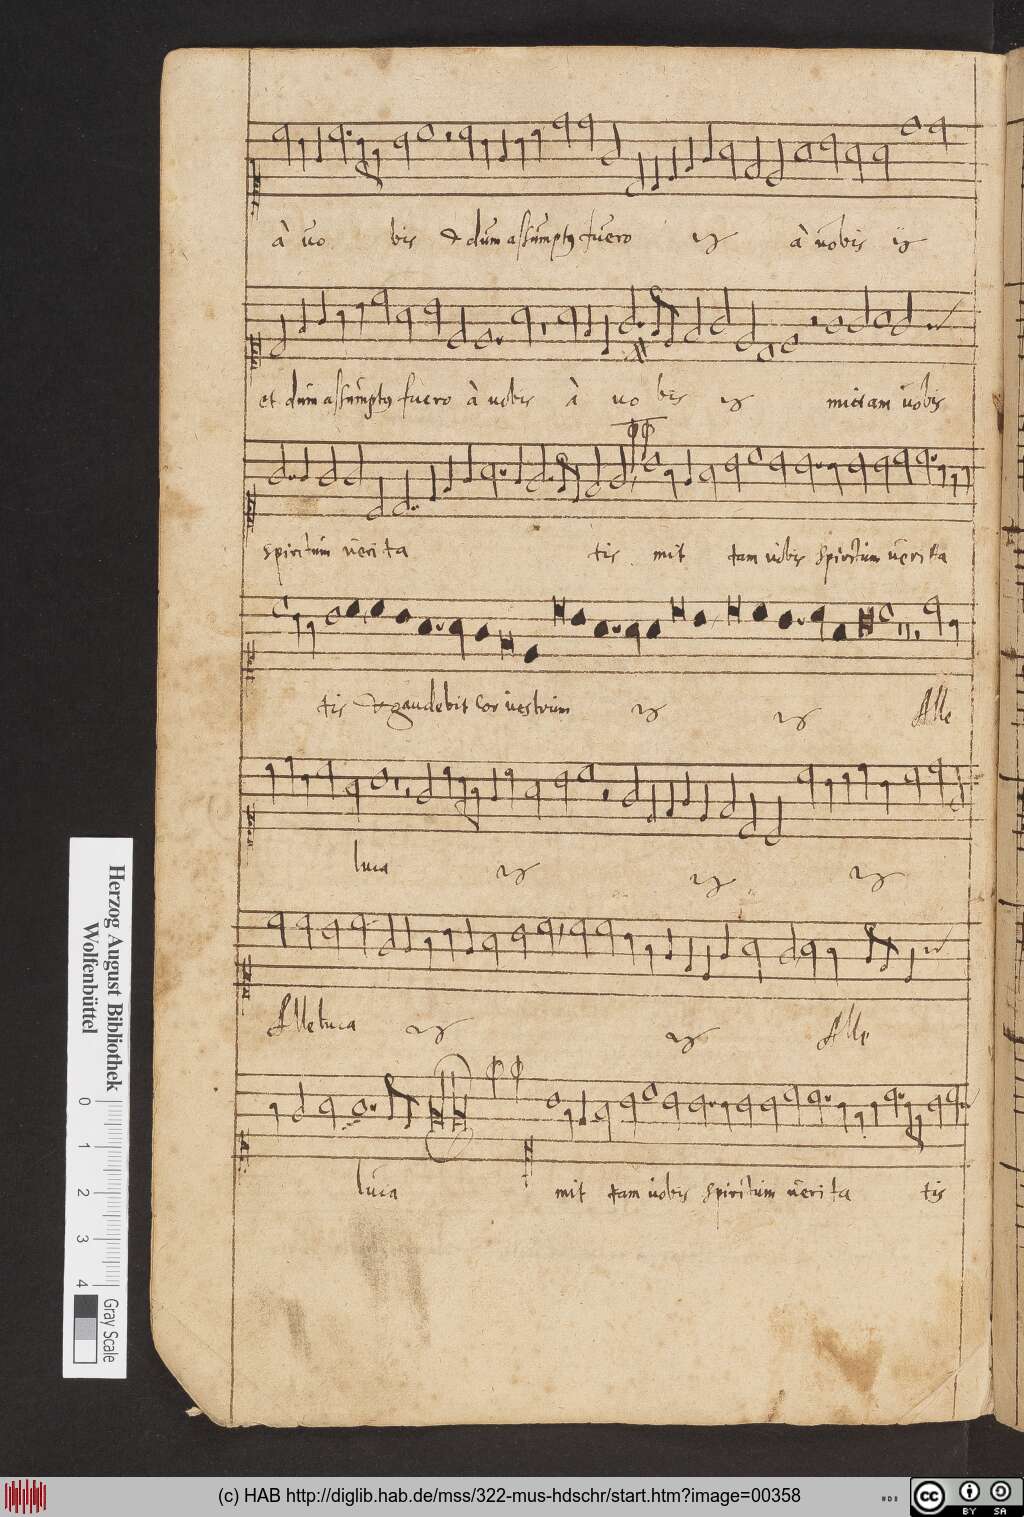 à vo bis & dum assumptus fuero ij à vobis ij
et dum assumptus fuero à vobis à vo bis ij mittam vobis
spiritum veri ta tis mit tam vobis spiritum veri ta
tis & gaudebit cor vestrum ij ij Alle
luia ij ij ij
Alleluia ij ij Alle
luia mit tam vobis spiritum veri ta tis
Herzog August Bibliothek
Wolfenbüttel
0 1 2 3 4
Gray Scale
(c) HAB http://diglib.hab.de/mss/322-mus-hdschr/start.htm?image=00358
cc BY SA